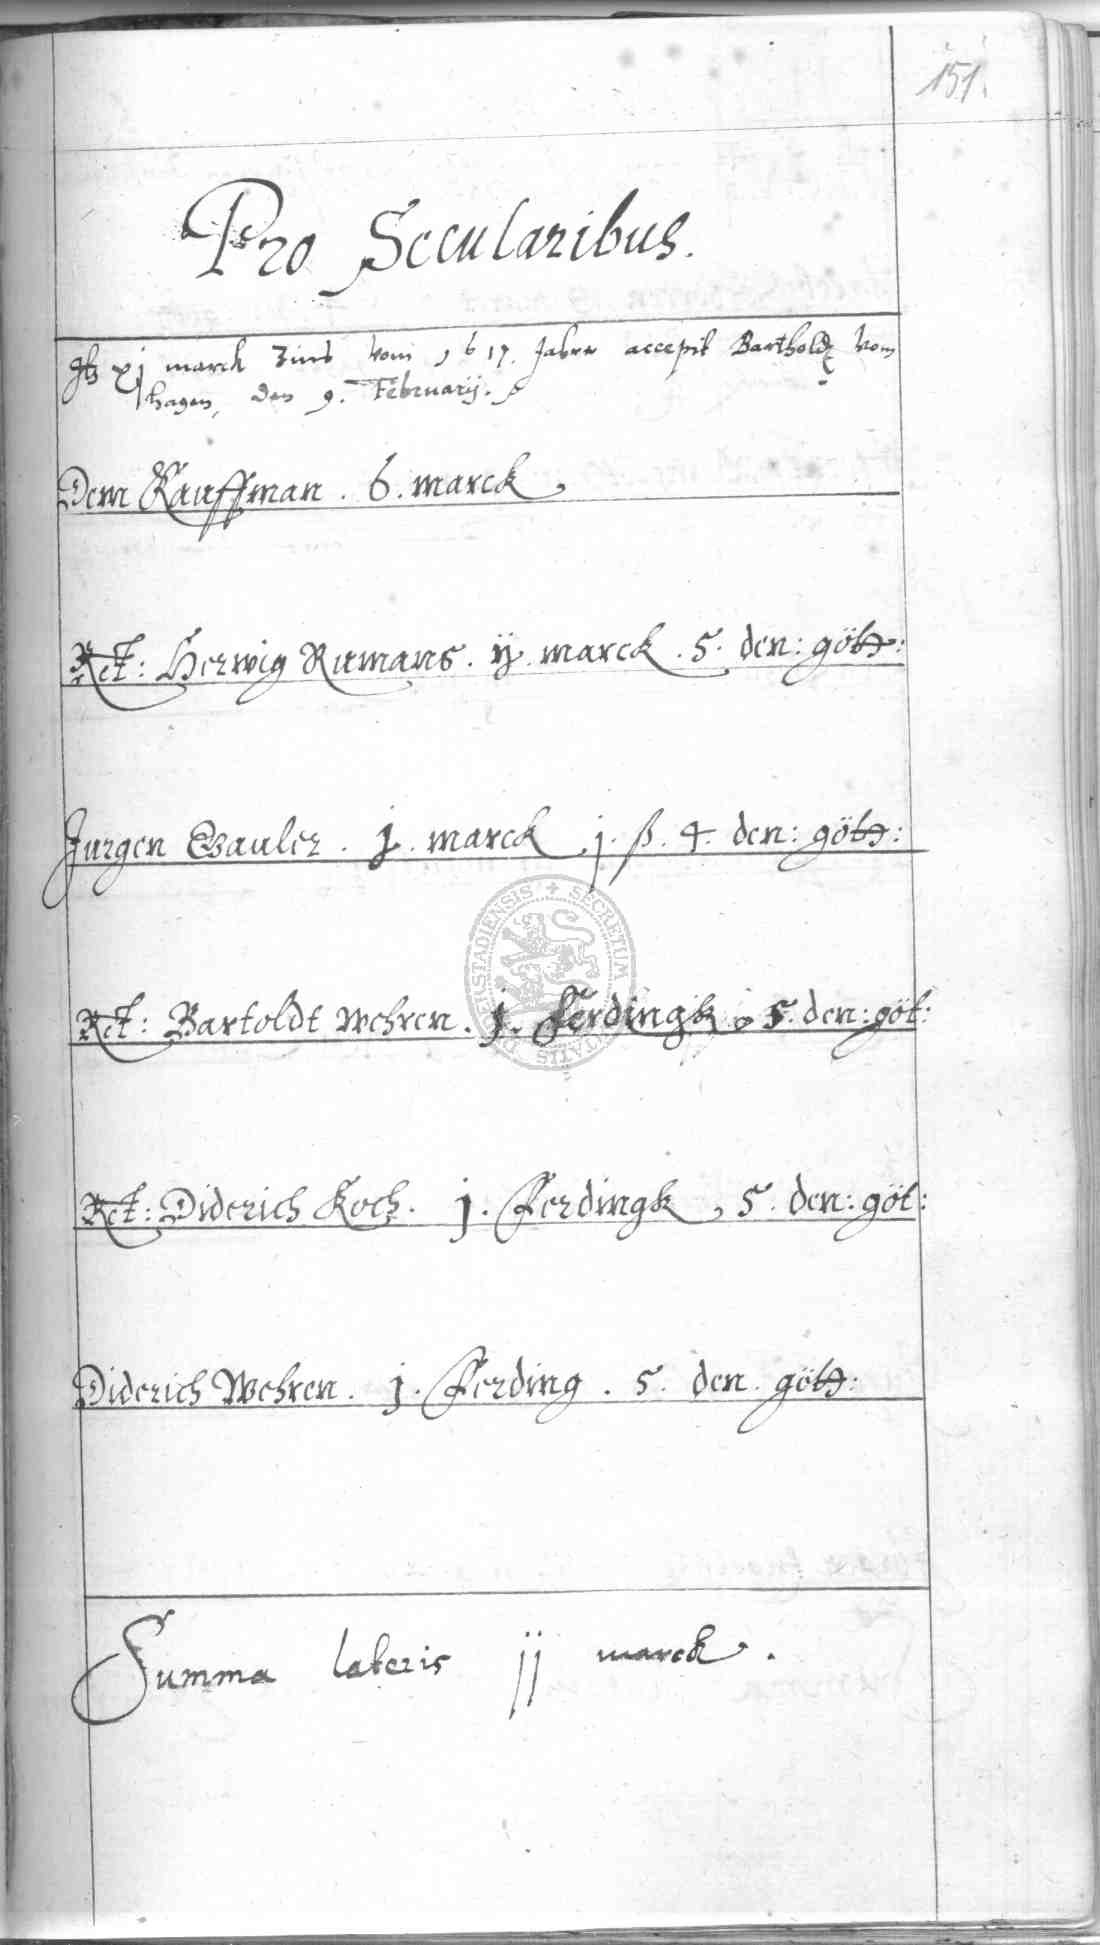 151.
Pro Secularibus.
Itz xj marck Zins vom 1617. Jahre accepit Barthold vom
hagen, den 9. Februarij.
Dem Kauffman. 6. marck
Rct: Herwig Rumans. ij. marck. 5. den: gött:
Jurgen Wauler. j. marck j. ß. 4. den: gött:
Rct: Bartoldt Wehren. j. Ferdingk. 5. den: göt:
Rct: Diderich Koch. j. Ferdingk, 5. den: göt:
Diderich Wehren. j. Ferding. 5. den. gött:
Summa lateris jj marck.
SECRETUM
DUDERSTADIENSIS